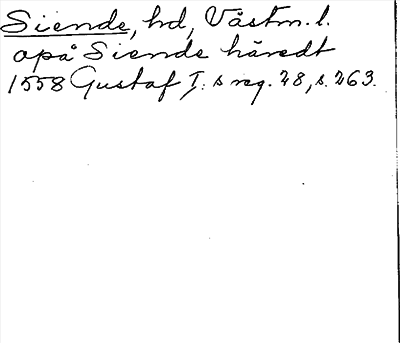 Siende, hd, Västm. l.
opå Siende häredt
1558 Gustaf I: s reg. 28, s. 263.